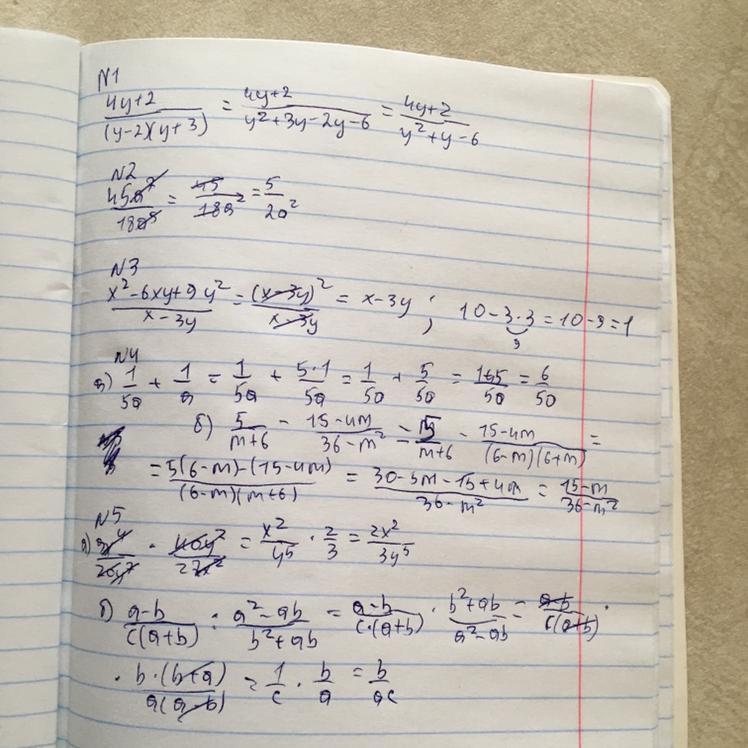 N1
4y+2/(y-2)(y+3) = 4y+2/y²+3y-2y-6 = 4y+2/y²+y-6
N2
= 45/18a² = 5/2a²
N3
x²-6xy+9y²/x-3y = (x-3y)²/x-3y = x-3y ; 10-3·3=10-9=1
9
N4
а) 1/5a + 1/a = 1/5a + 5·1/5a = 1/5a + 5/5a = 1+5/5a = 6/5a
б) 5/m+6 - 15-4m/36-m² = 5/m+6 - 15-4m/(6-m)(6+m) =
= 5(6-m)-(15-4m)/(6-m)(m+6) = 30-5m-15+4m/36-m² = 15-m/36-m²
N5
а) · = x²/y⁵ · 2/3 = 2x²/3y⁵
б) a-b/c(a+b) : a²-ab/b²+ab = a-b/c·(a+b) · b²+ab/a²-ab = a-b/c(a+b) ·
· b·(b+a)/a(a-b) = 1/c · b/a = b/ac